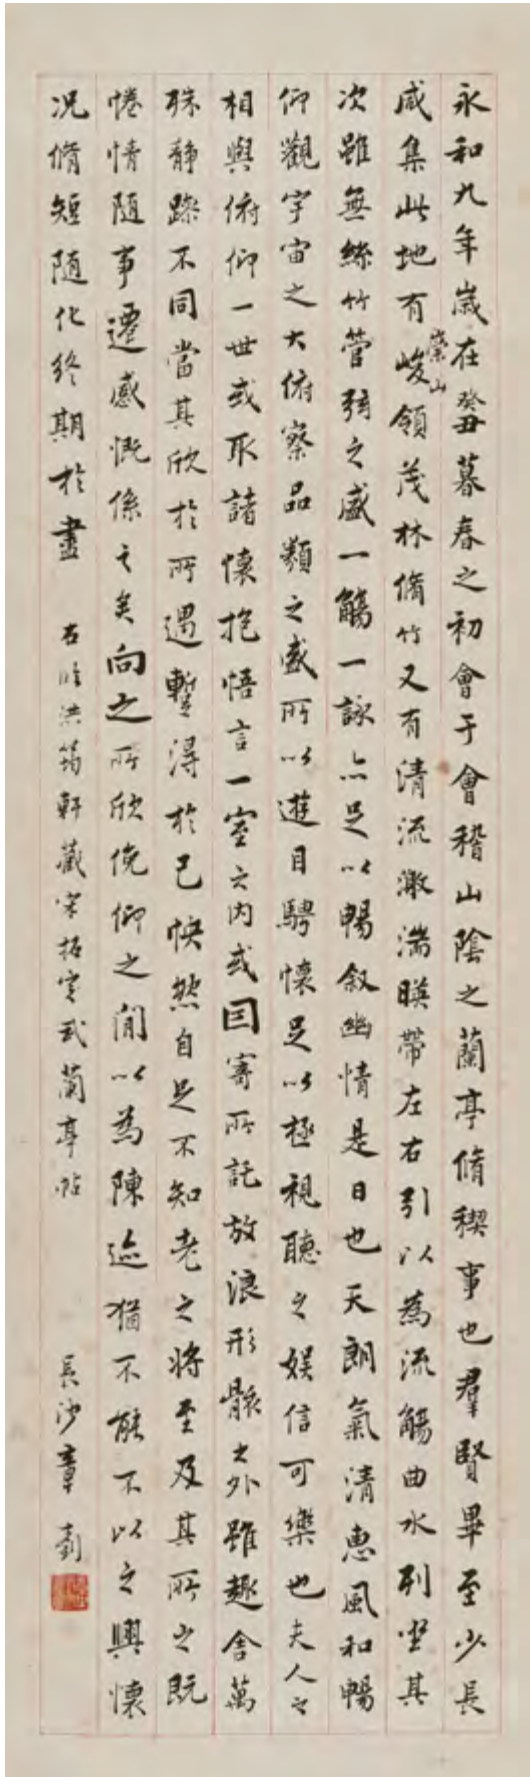 永和九年歲在癸丑暮春之初會于會稽山陰之蘭亭脩稧事也羣賢畢至少長
咸集此地有崇山峻領茂林脩竹又有清流激湍暎帶左右引以為流觴曲水列坐其
次雖無絲竹管弦之盛一觴一詠亦足以暢敘幽情是日也天朗氣清惠風和暢
仰觀宇宙之大俯察品類之盛所以遊目騁懷足以極視聽之娛信可樂也夫人之
相與俯仰一世或取諸懷抱悟言一室之內或因寄所託放浪形骸之外雖趣舍萬
殊靜躁不同當其欣於所遇暫得於己怏然自足不知老之將至及其所之既
惓情隨事遷感慨係之矣向之所欣俛仰之閒以為陳迹猶不能不以之興懷
況脩短隨化終期於盡 右臨洪筠軒藏宋拓定武蘭亭帖 長沙章